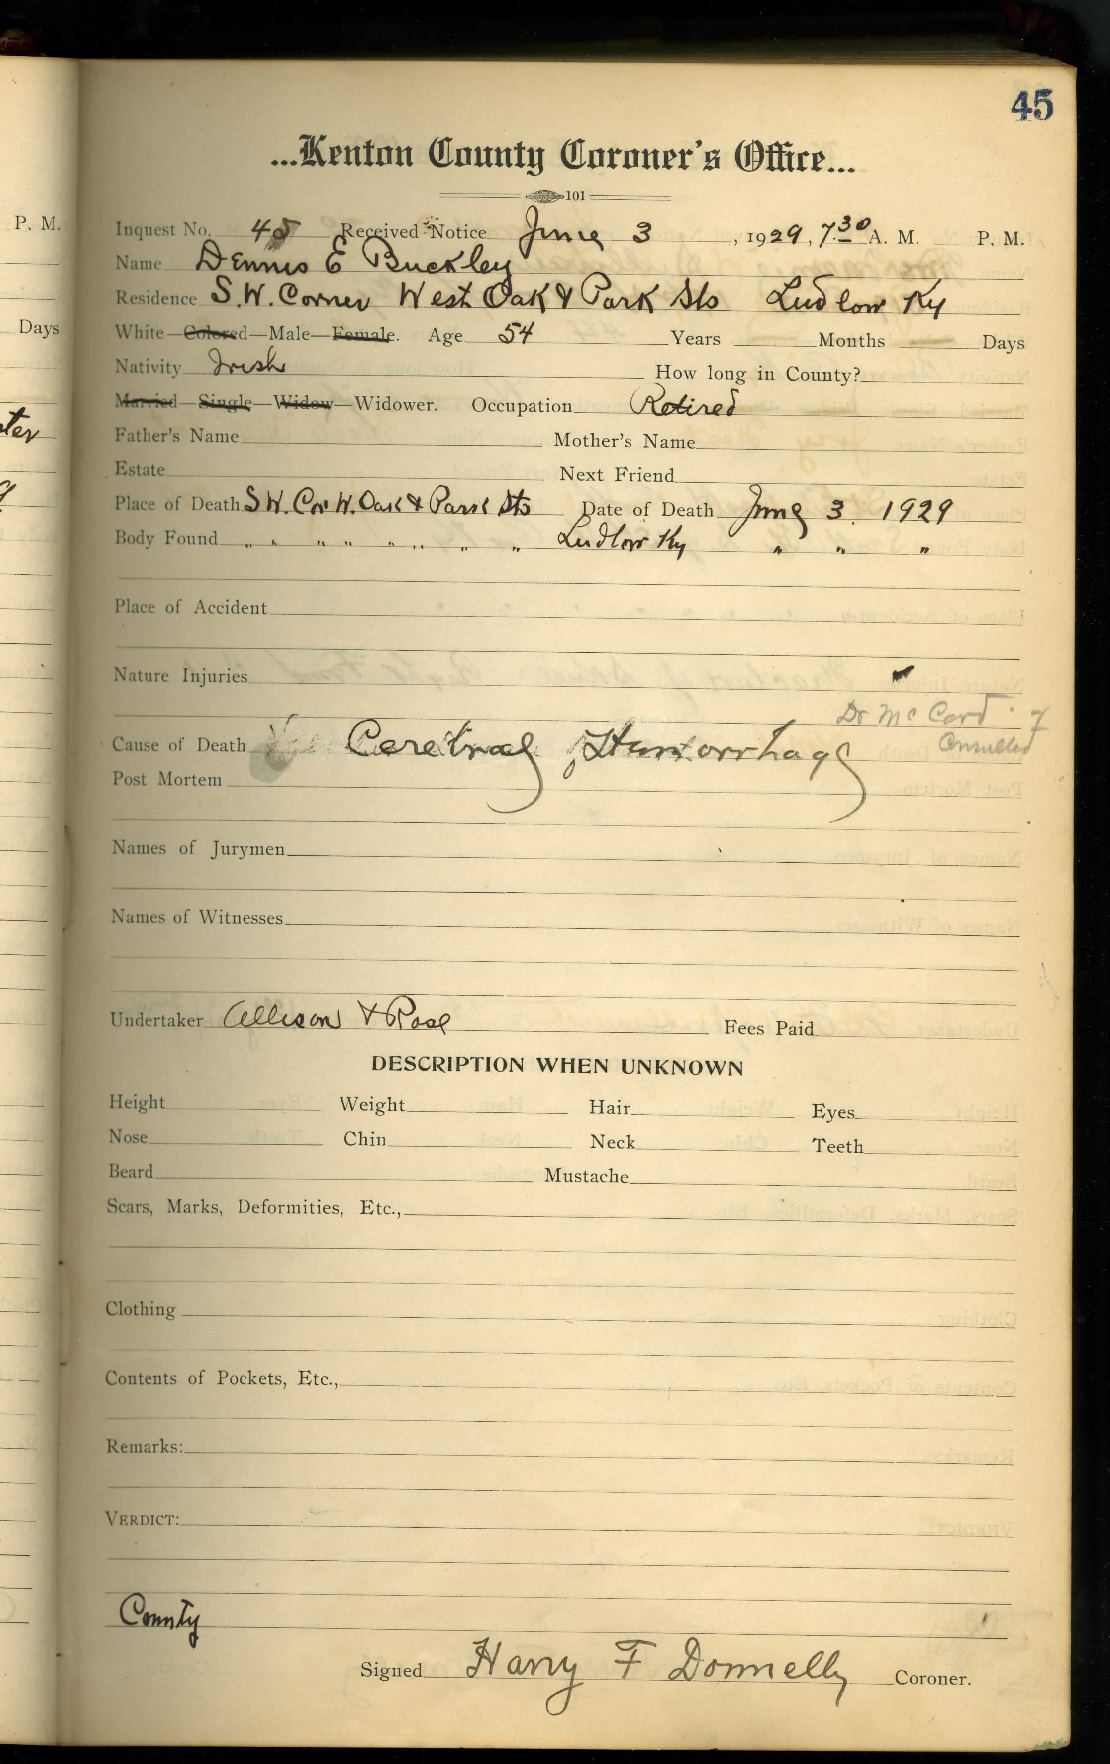 45
...Kenton County Coroner's Office...
101
P. M.
Inquest No. 45 Received Notice June 3, 1929, 7:30 A. M. P. M.
Name Dennis E Buckley
Residence S.W. Corner West Oak & Park Sts Ludlow Ky
Days
White—Colored—Male—Female. Age 54 Years Months Days
Nativity Irish How long in County?
Married—Single—Widow—Widower. Occupation Retired
Father's Name Mother's Name
Estate Next Friend
Place of Death S W. Cor W. Oak & Park Sts Date of Death June 3. 1929
Body Found " " " " " " " " Ludlow Ky " " "
Place of Accident
Nature Injuries
Dr McCord
Consulted
Cause of Death Cerebral Hemorrhage
Post Mortem
Names of Jurymen
Names of Witnesses
Undertaker Allison & Rose Fees Paid
DESCRIPTION WHEN UNKNOWN
Height Weight Hair Eyes
Nose Chin Neck Teeth
Beard Mustache
Scars, Marks, Deformities, Etc.,
Clothing
Contents of Pockets, Etc.,
Remarks:
VERDICT:
County
Signed Harry F Donnelly Coroner.